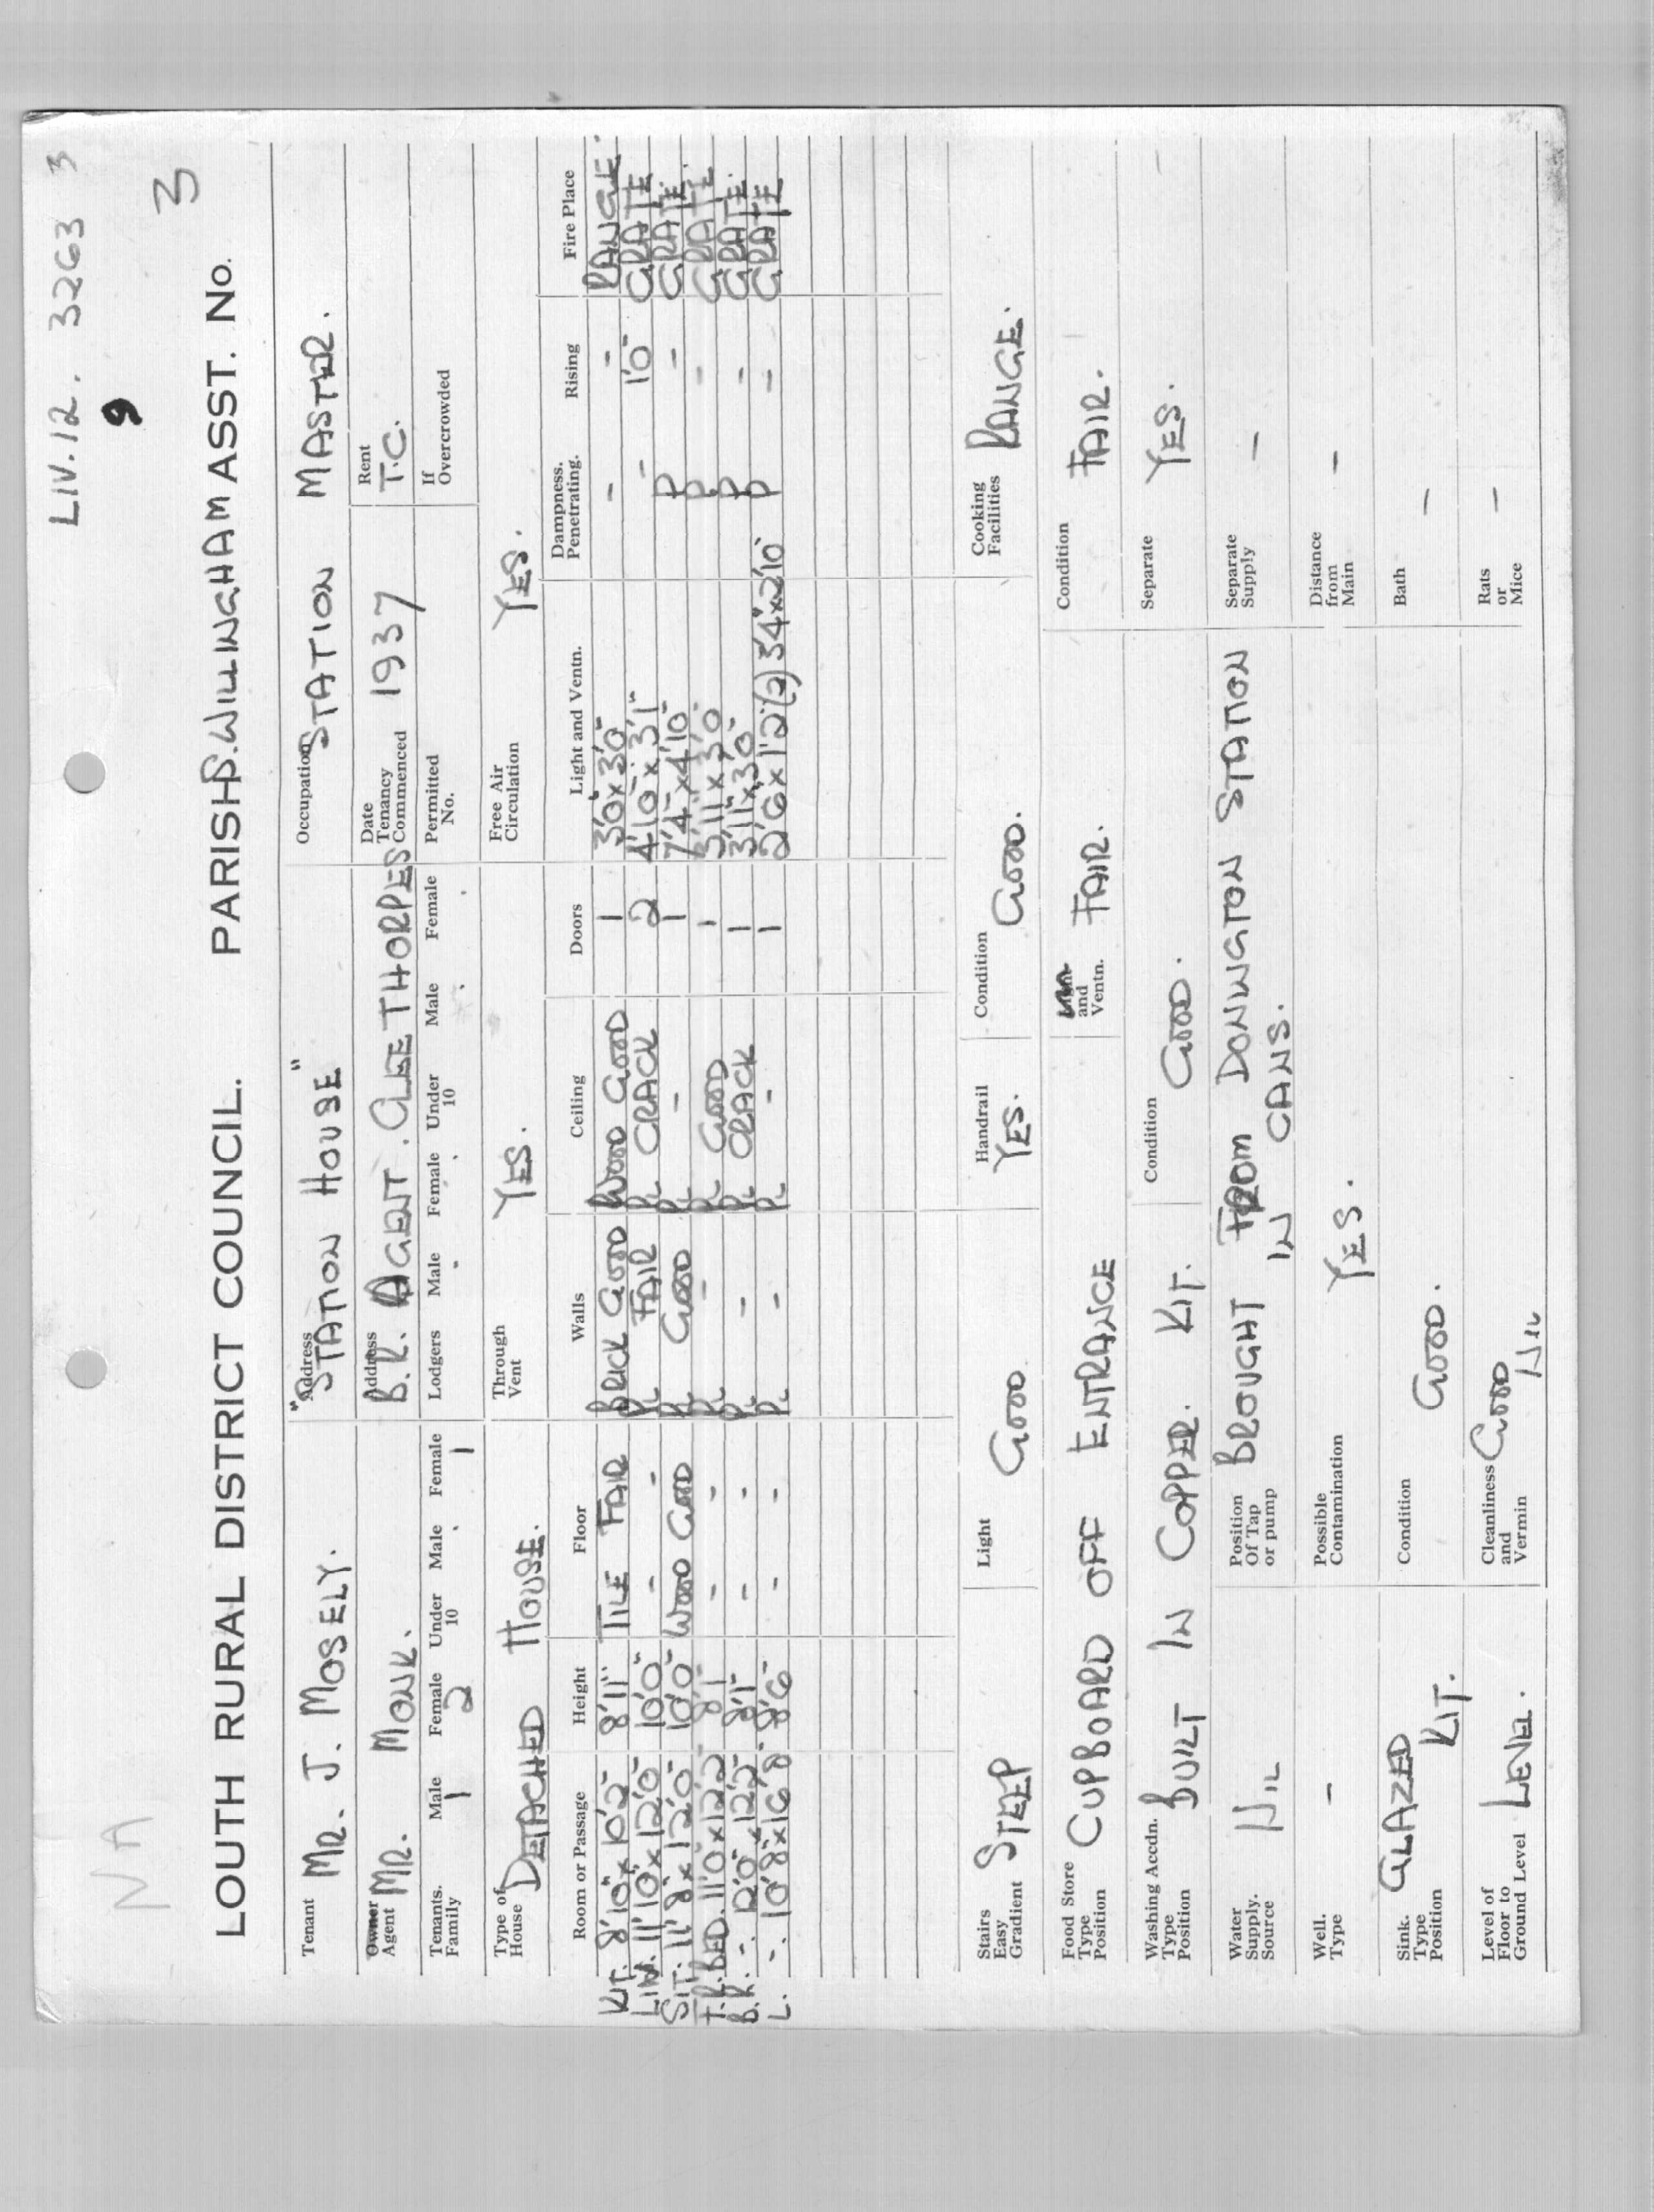 NA
LIV.12. 3263 3
9
3
LOUTH RURAL DISTRICT COUNCIL. PARISH S. WILLINGHAM ASST. No.
Tenant MR. J. MOSELY. Address "STATION HOUSE" Occupation STATION MASTER.
Owner Agent MR. MONK. Address B.R. AGENT. CLEETHORPES Date Tenancy Commenced 1937 Rent T.C.
Tenants. Family Male 1 Female 2 Under 10 Male . Female 1 Lodgers Male . Female . Under 10 Male . Female . Permitted No. If Overcrowded
Type of House DETACHED HOUSE. Through Vent YES. Free Air Circulation YES.
Room or Passage Height Floor Walls Ceiling Doors Light and Ventn. Dampness. Penetrating. Rising Fire Place
KIT. 8'10" x 10'2" 8'11" TILE FAIR BRICK GOOD WOOD GOOD 1 3'0" x 3'0" - - RANGE.
LIV. 11'10" x 12'0" 10'0" - - PL FAIR PL CRACK 2 4'10" x 3'1" - 1'0" GRATE
SIT. 11'8" x 12'0" 10'0" WOOD GOOD PL GOOD PL - 1 7'4" x 4'10" P - GRATE.
F.R. BED. 11'0" x 12'2" 8'1" - - PL - PL GOOD 1 3'11" x 3'0" P - GRATE.
B.R. -. 12'0" x 12'2" 8'1" - - PL - PL CRACK 1 3'11" x 3'0" P - GRATE.
L. -. 10'8" x 16'8" 8'6" - - PL - PL - 1 2'6" x 1'2" (2) 3'4" x 2'10" P - GRATE
Stairs Easy Gradient STEEP Light GOOD Handrail YES. Condition GOOD. Cooking Facilities RANGE.
Food Store Type Position CUPBOARD OFF ENTRANCE Light and Ventn. FAIR. Condition FAIR.
Washing Accdn. Type Position BUILT IN COPPER. KIT. Condition GOOD. Separate YES.
Water Supply. Source NIL Position Of Tap or pump BROUGHT FROM DONINGTON STATION Separate Supply -
IN CANS.
Well. Type - Possible Contamination YES. Distance from Main -
Sink. Type Position GLAZED KIT. Condition GOOD. Bath -
Level of Floor to Ground Level LEVEL. Cleanliness and Vermin GOOD NIL Rats or Mice -